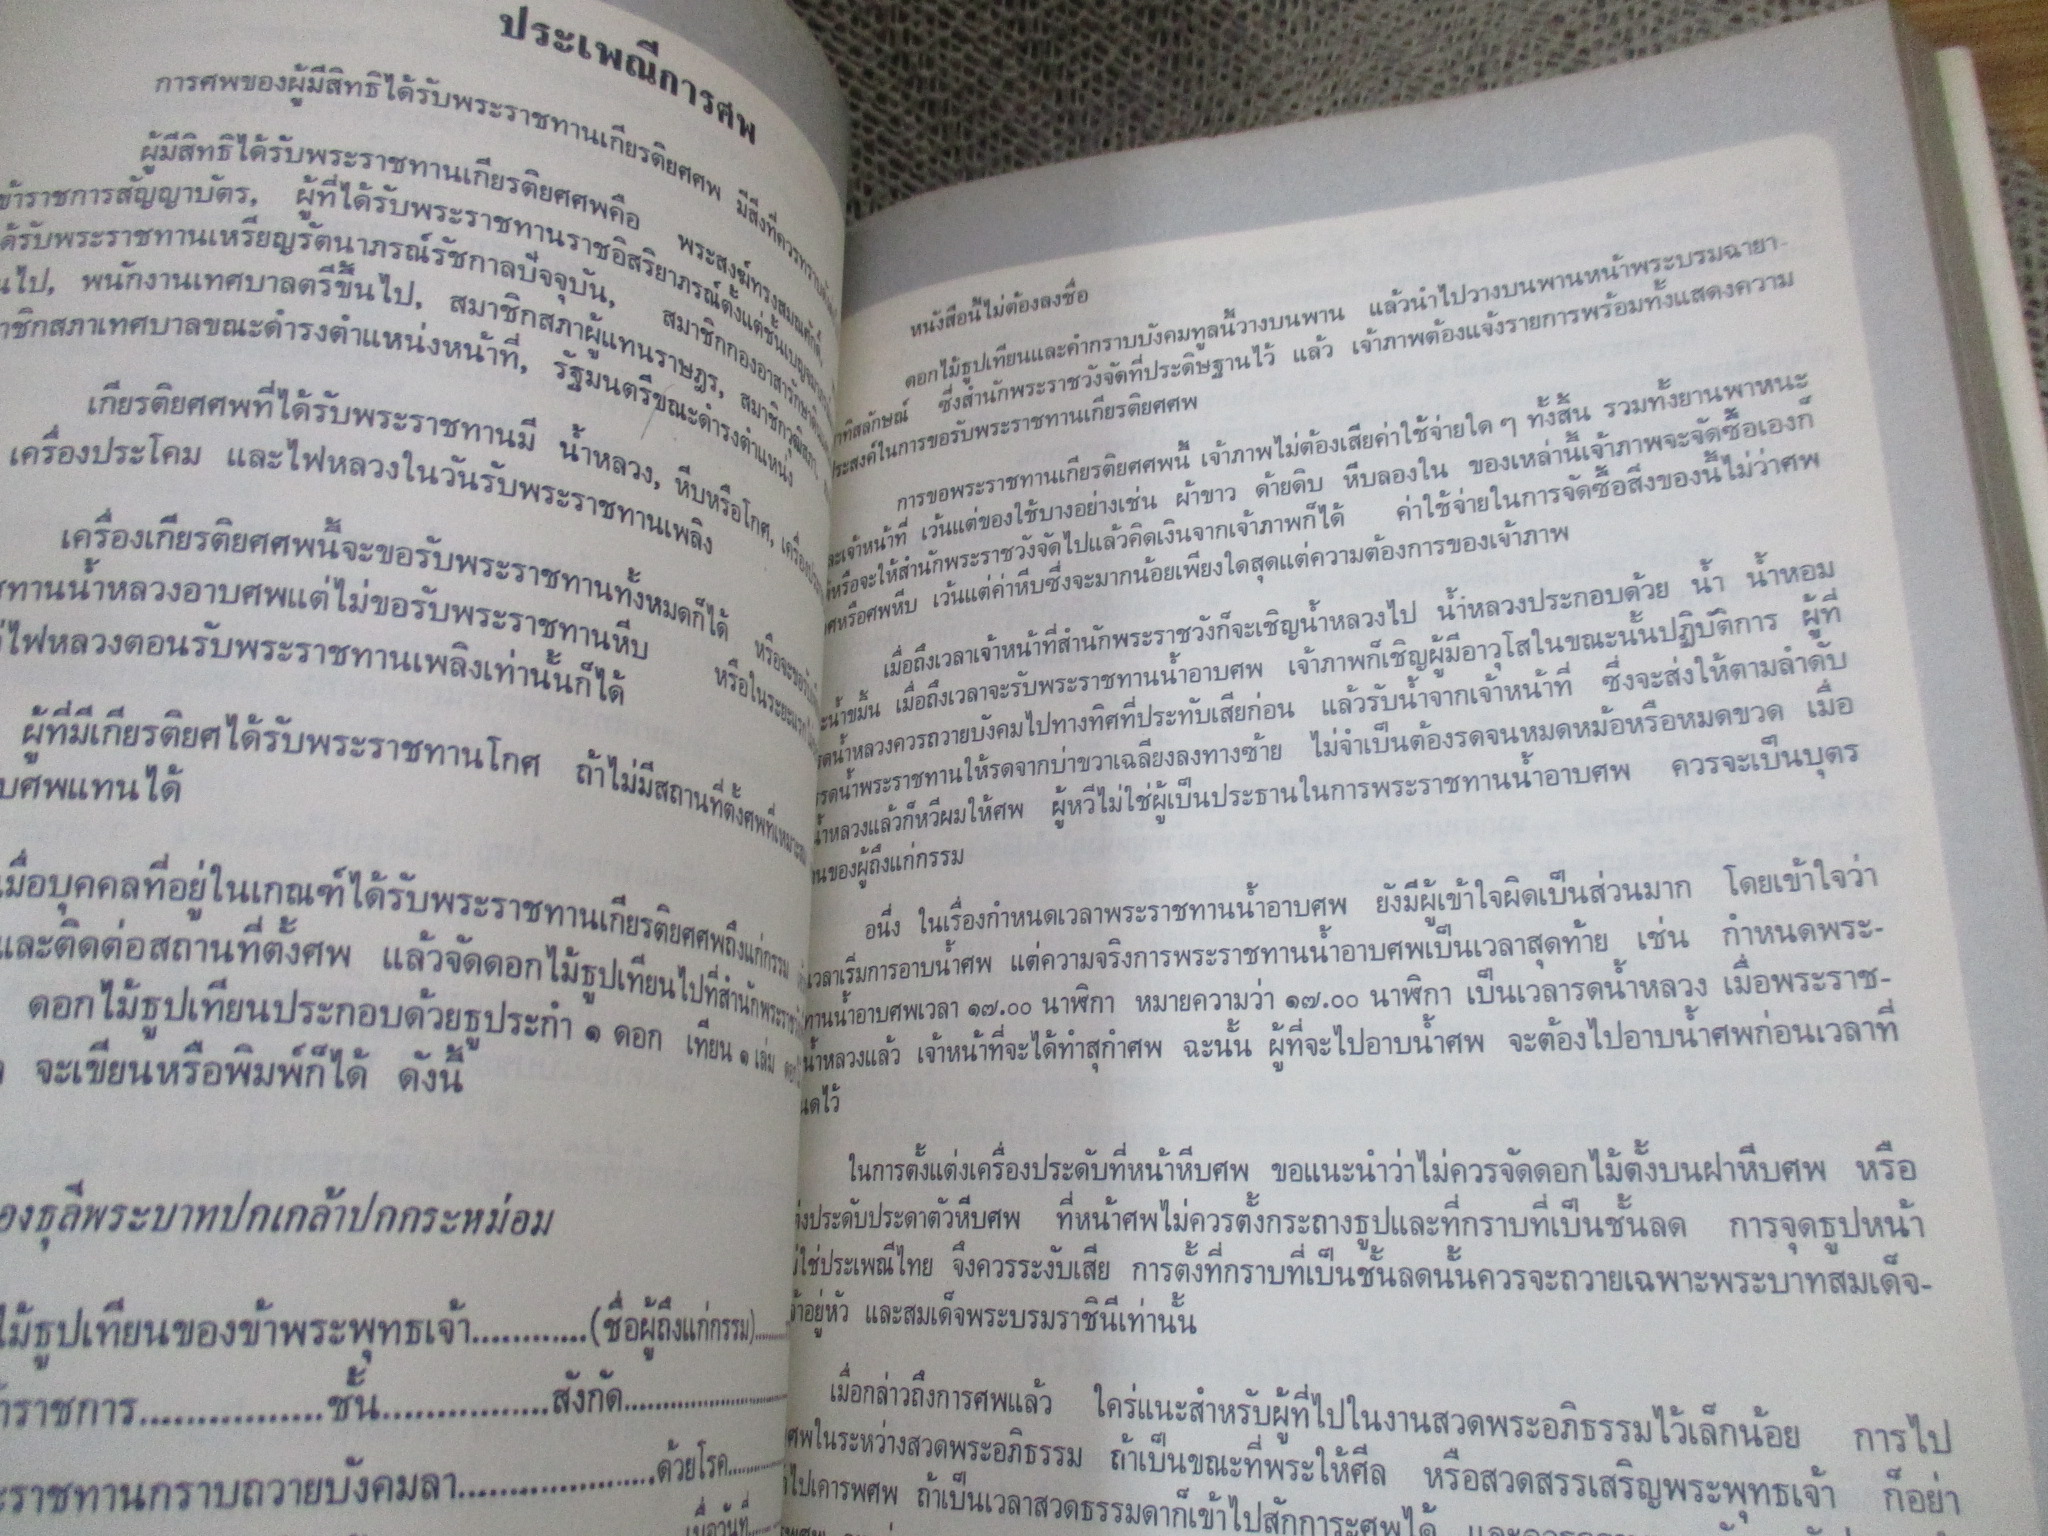 ประเพณีการศพ
การศพของผู้มีสิทธิได้รับพระราชทานเกียรติยศศพ มีสิ่งที่ควรทราบ
ผู้มีสิทธิได้รับพระราชทานเกียรติยศศพคือ พระสงฆ์ทรงสมณศักดิ์,
ข้าราชการสัญญาบัตร, ผู้ที่ได้รับพระราชทานราชอิสริยาภรณ์ตั้งแต่ชั้น
ได้รับพระราชทานเหรียญรัตนาภรณ์รัชกาลปัจจุบัน, สมาชิกกองอาสารักษา
นไป, พนักงานเทศบาลตรีขึ้นไป, สมาชิกสภาผู้แทนราษฎร, สมาชิกวุฒิสภา,
าชิกสภาเทศบาลขณะดำรงตำแหน่งหน้าที่, รัฐมนตรีขณะดำรงตำแหน่ง
เกียรติยศศพที่ได้รับพระราชทานมี น้ำหลวง, หีบหรือโกศ,
เครื่องประโคม และไฟหลวงในวันรับพระราชทานเพลิง
เครื่องเกียรติยศศพนี้จะขอรับพระราชทานทั้งหมดก็ได้ หรือจะขอรับ
ชทานน้ำหลวงอาบศพแต่ไม่ขอรับพระราชทานหีบ หรือในระยะแรก
ไฟหลวงตอนรับพระราชทานเพลิงเท่านั้นก็ได้
ผู้ที่มีเกียรติยศได้รับพระราชทานโกศ ถ้าไม่มีสถานที่ตั้งศพที่เหมาะสม
บศพแทนได้
เมื่อบุคคลที่อยู่ในเกณฑ์ได้รับพระราชทานเกียรติยศศพถึงแก่กรรม
และติดต่อสถานที่ตั้งศพ แล้วจัดดอกไม้ธูปเทียนไปที่สำนักพระราชวัง
ดอกไม้ธูปเทียนประกอบด้วยธูประกำ ๑ ดอก เทียน ๑ เล่ม
จะเขียนหรือพิมพ์ก็ได้ ดังนี้
องธุลีพระบาทปกเกล้าปกกระหม่อม
ไม้ธูปเทียนของข้าพระพุทธเจ้า............(ชื่อผู้ถึงแก่กรรม)........
าราชการ................ชั้น...............สังกัด....................
ะราชทานกราบถวายบังคมลา...................ด้วยโรค...........
เมื่อวันที่.......
หนังสือนี้ไม่ต้องลงชื่อ
ดอกไม้ธูปเทียนและคำกราบบังคมทูลนี้วางบนพาน แล้วนำไปวางบนพานหน้าพระบรมฉายา-
ทิสลักษณ์ ซึ่งสำนักพระราชวังจัดที่ประดิษฐานไว้ แล้ว เจ้าภาพต้องแจ้งรายการพร้อมทั้งแสดงความ
ประสงค์ในการขอรับพระราชทานเกียรติยศศพ
การขอพระราชทานเกียรติยศศพนี้ เจ้าภาพไม่ต้องเสียค่าใช้จ่ายใด ๆ ทั้งสิ้น รวมทั้งยานพาหนะ
ละเจ้าหน้าที่ เว้นแต่ของใช้บางอย่างเช่น ผ้าขาว ด้ายดิบ หีบลองใน ของเหล่านี้เจ้าภาพจะจัดซื้อเองก็
หรือจะให้สำนักพระราชวังจัดไปแล้วคิดเงินจากเจ้าภาพก็ได้ ค่าใช้จ่ายในการจัดซื้อสิ่งของนี้ไม่ว่าศพ
ศหรือศพหีบ เว้นแต่ค่าหีบซึ่งจะมากน้อยเพียงใดสุดแต่ความต้องการของเจ้าภาพ
เมื่อถึงเวลาเจ้าหน้าที่สำนักพระราชวังก็จะเชิญน้ำหลวงไป น้ำหลวงประกอบด้วย น้ำ น้ำหอม
ะน้ำขมิ้น เมื่อถึงเวลาจะรับพระราชทานน้ำอาบศพ เจ้าภาพก็เชิญผู้มีอาวุโสในขณะนั้นปฏิบัติการ ผู้ที่
รดน้ำหลวงควรถวายบังคมไปทางทิศที่ประทับเสียก่อน แล้วรับน้ำจากเจ้าหน้าที่ ซึ่งจะส่งให้ตามลำดับ
รดน้ำพระราชทานให้รดจากบ่าขวาเฉลียงลงทางซ้าย ไม่จำเป็นต้องรดจนหมดหม้อหรือหมดขวด เมื่อ
น้ำหลวงแล้วก็หวีผมให้ศพ ผู้หวีไม่ใช่ผู้เป็นประธานในการพระราชทานน้ำอาบศพ ควรจะเป็นบุตร
านของผู้ถึงแก่กรรม
อนึ่ง ในเรื่องกำหนดเวลาพระราชทานน้ำอาบศพ ยังมีผู้เข้าใจผิดเป็นส่วนมาก โดยเข้าใจว่า
เวลาเริ่มการอาบน้ำศพ แต่ความจริงการพระราชทานน้ำอาบศพเป็นเวลาสุดท้าย เช่น กำหนดพระ-
ทานน้ำอาบศพเวลา ๑๗.๐๐ นาฬิกา หมายความว่า ๑๗.๐๐ นาฬิกา เป็นเวลารดน้ำหลวง เมื่อพระราช-
น้ำหลวงแล้ว เจ้าหน้าที่จะได้ทำสุกำศพ ฉะนั้น ผู้ที่จะไปอาบน้ำศพ จะต้องไปอาบน้ำศพก่อนเวลาที่
นดไว้
ในการตั้งแต่งเครื่องประดับที่หน้าหีบศพ ขอแนะนำว่าไม่ควรจัดดอกไม้ตั้งบนฝาหีบศพ หรือ
ต่งประดับประดาตัวหีบศพ ที่หน้าศพไม่ควรตั้งกระถางธูปและที่กราบที่เป็นชั้นลด การจุดธูปหน้า
ม่ใช่ประเพณีไทย จึงควรระงับเสีย การตั้งที่กราบที่เป็นชั้นลดนั้นควรจะถวายเฉพาะพระบาทสมเด็จ-
จ้าอยู่หัว และสมเด็จพระบรมราชินีเท่านั้น
เมื่อกล่าวถึงการศพแล้ว ใคร่แนะสำหรับผู้ที่ไปในงานสวดพระอภิธรรมไว้เล็กน้อย การไป
ศพในระหว่างสวดพระอภิธรรม ถ้าเป็นขณะที่พระให้ศีล หรือสวดสรรเสริญพระพุทธเจ้า ก็อย่า
ไปเคารพศพ ถ้าเป็นเวลาสวดธรรมดาก็เข้าไปสักการะศพได้